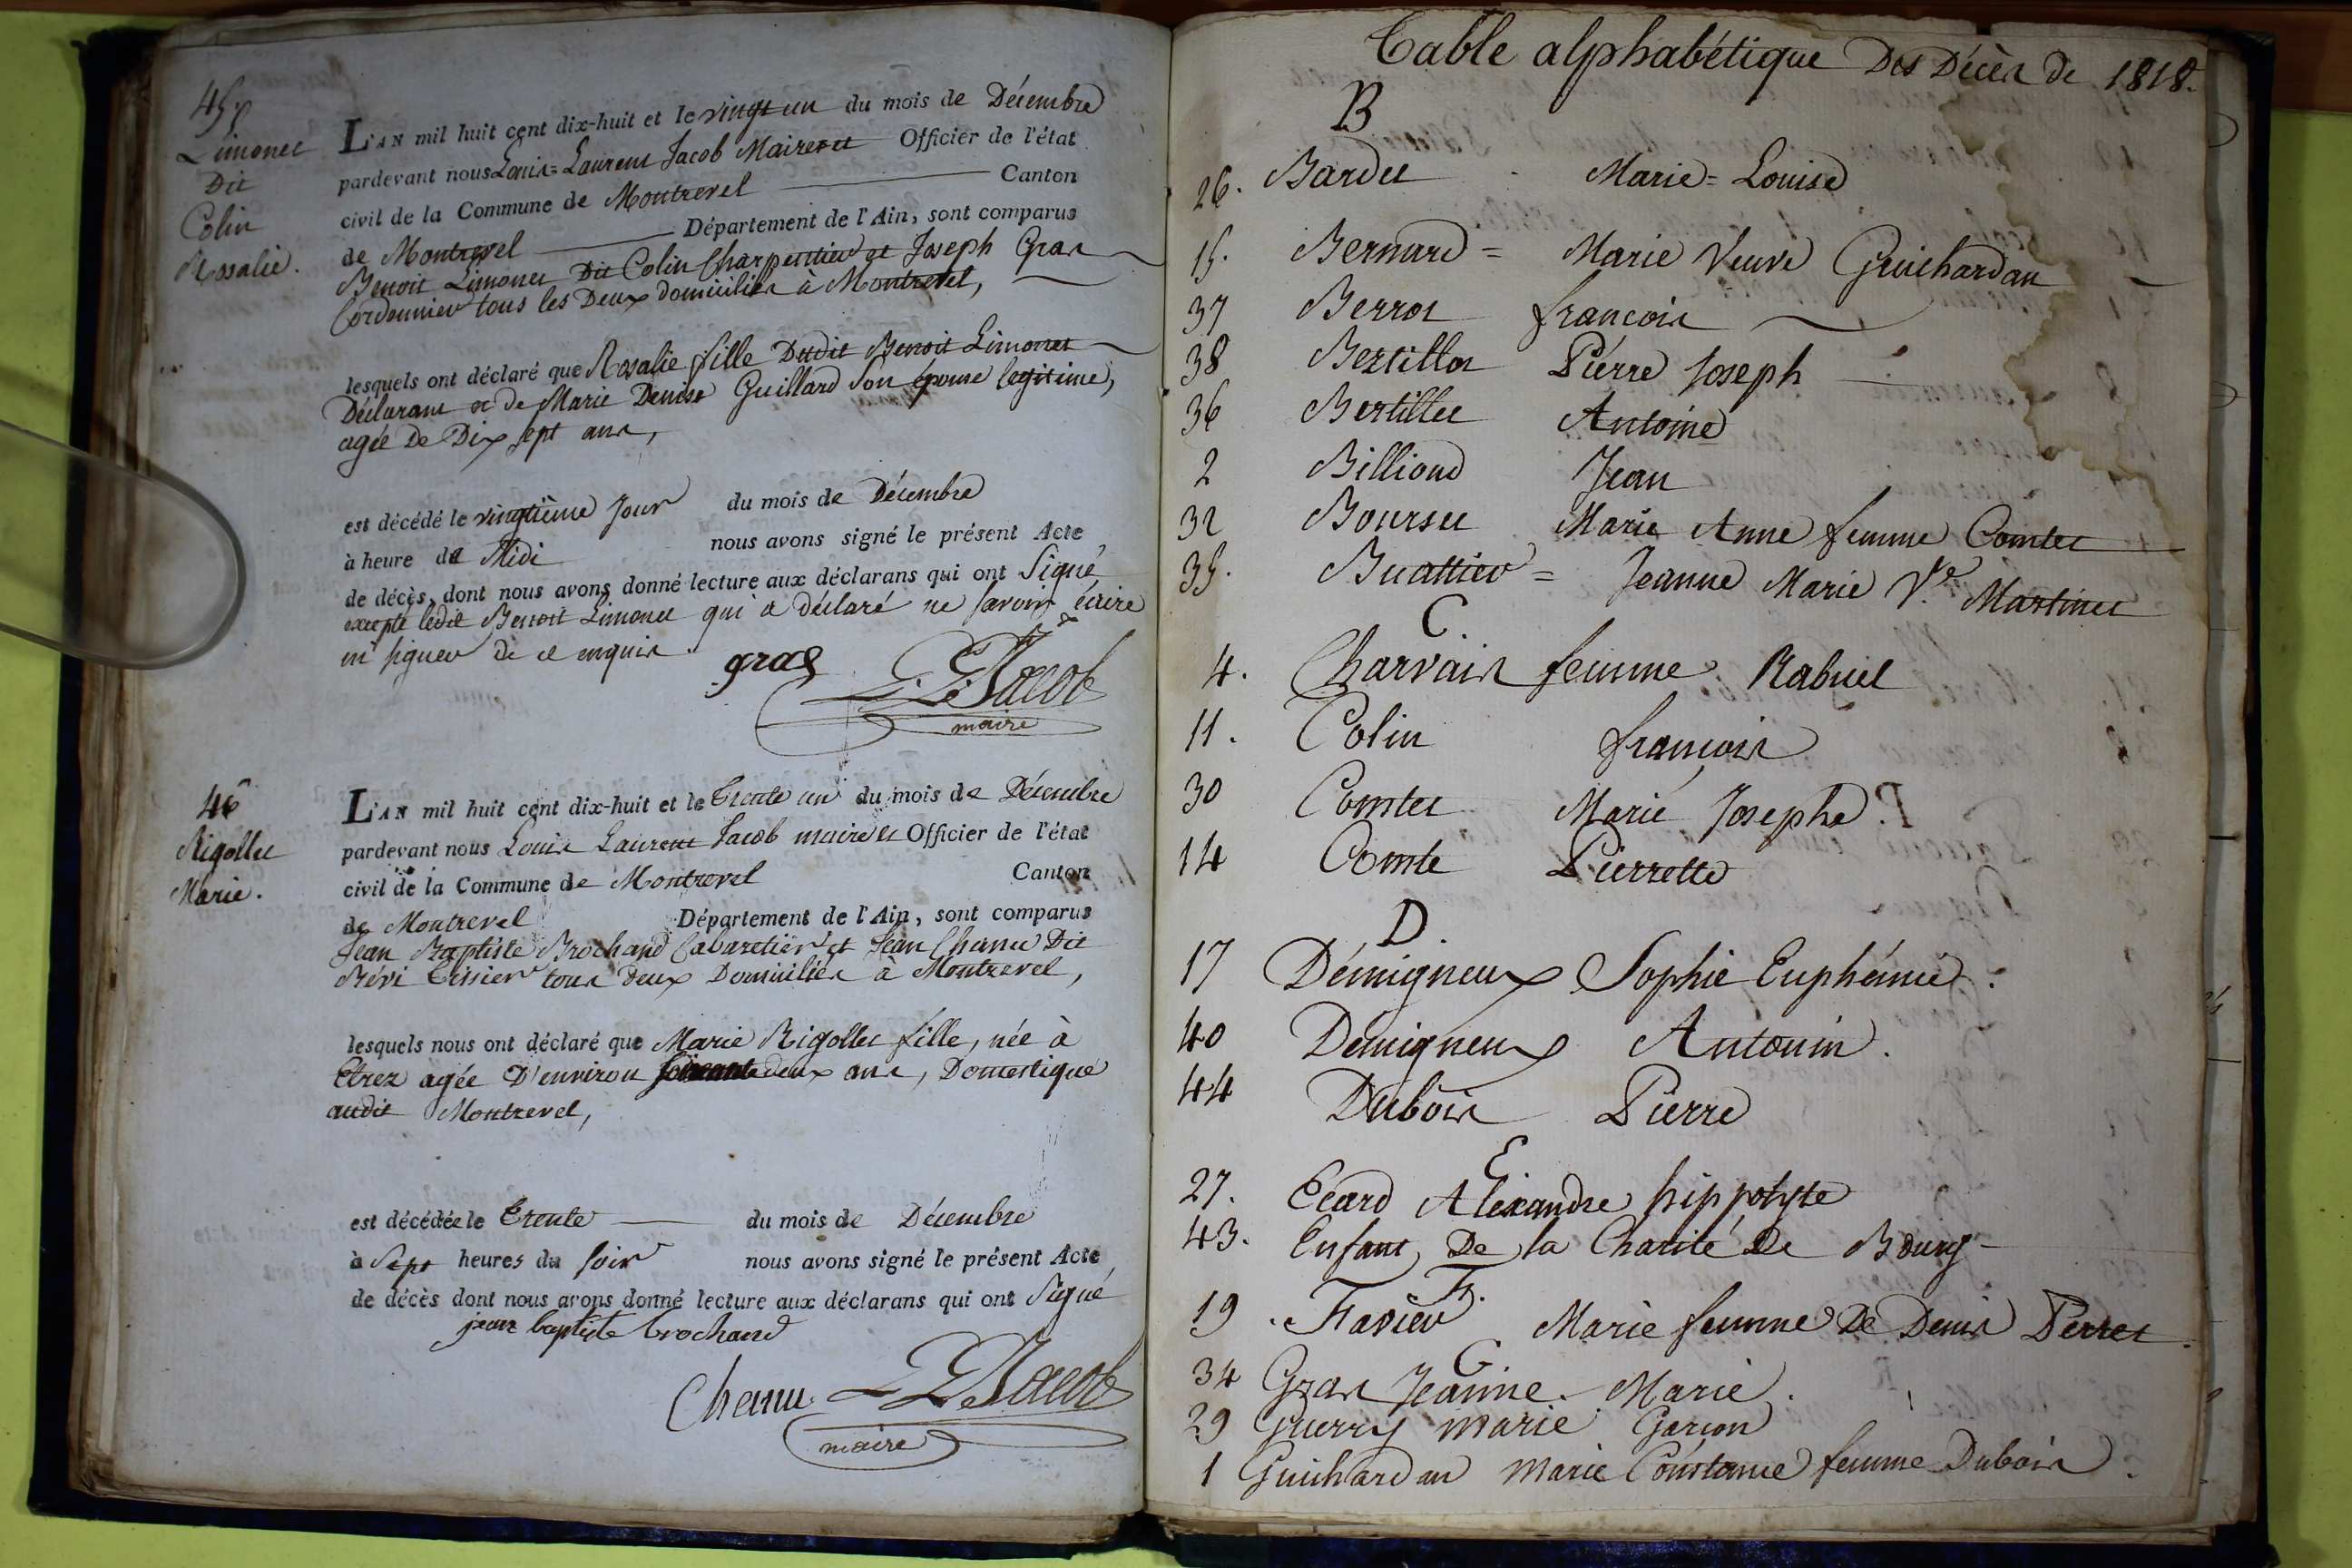 45.
Limonet
Dit
Colin
Rosalie.
L'AN mil huit cent dix-huit et le vingt un du mois de Décembre
pardevant nous Louis=Laurent Jacob Maire et Officier de l'état
civil de la Commune de Montrevel Canton
de Montrevel Département de l'Ain, sont comparus
Benoit Limonet Dit Colin Charpentier et Joseph Gras
Cordonnier tous les Deux domiciliés à Montrevel,
lesquels ont déclaré que Rosalie fille Dudit Benoit Limonet
Déclarant et de Marie Denise Guillard Son épouse legitime,
agée De Dix sept ans,
est décédé le vingtième Jour du mois de Décembre
à heure de Midi nous avons signé le présent Acte
de décès, dont nous avons donné lecture aux déclarans qui ont Signé
excepté ledit Benoit Limonet qui a déclaré ne savoir écrire
ni signer de ce enquis.
gras L. L. Jacob
maire
46
Rigollet
Marie.
L'AN mil huit cent dix-huit et le Trente un du mois de Décembre
pardevant nous Louis Laurent Jacob maire et Officier de l'état
civil de la Commune de Montrevel Canton
de Montrevel Département de l'Ain, sont comparus
Jean Baptiste Brochand Cabaretier et Jean Chanu Dit
Révi Tissier tous deux Domiciliés à Montrevel,
lesquels nous ont déclaré que Marie Rigollet fille, née à
Etrez agée D'environ Soixante deux ans, Domestique
audit Montrevel,
est décédée le Trente du mois de Décembre
à Sept heures du soir nous avons signé le présent Acte
de décès dont nous avons donné lecture aux déclarans qui ont Signé
jean baptiste brochand
Chanu L L Jacob
maire
Table alphabétique Des Décès de 1818.
B
26. Bardet Marie=Louise
15. Bernard = Marie Veuve Guichardan
37 Berros francois
38 Bertillot Pierre Joseph
36 Bertillet Antoine
2 Billioud Jean
32 Bourset Marie Anne femme Comtet
35. Buattier = Jeanne Marie Ve Martinet
C.
4. Charvais femme Rabuel
11. Colin françois
30 Comtet Marie Josephe.
14 Comte Pierrette
D.
17 Démigneux Sophie Euphémie.
40 Demigneux Antonin.
44 Dubois Pierre
E
27. Ecard Alexandre hippolyte
43. Enfant De la Charité De Bourg
F.
19. Favier Marie femme De Denis Perret
G.
34 Gras Jeanne-Marie.
29 Guerry Marie Garçon
1 Guichardan Marie Constance femme Dubois.